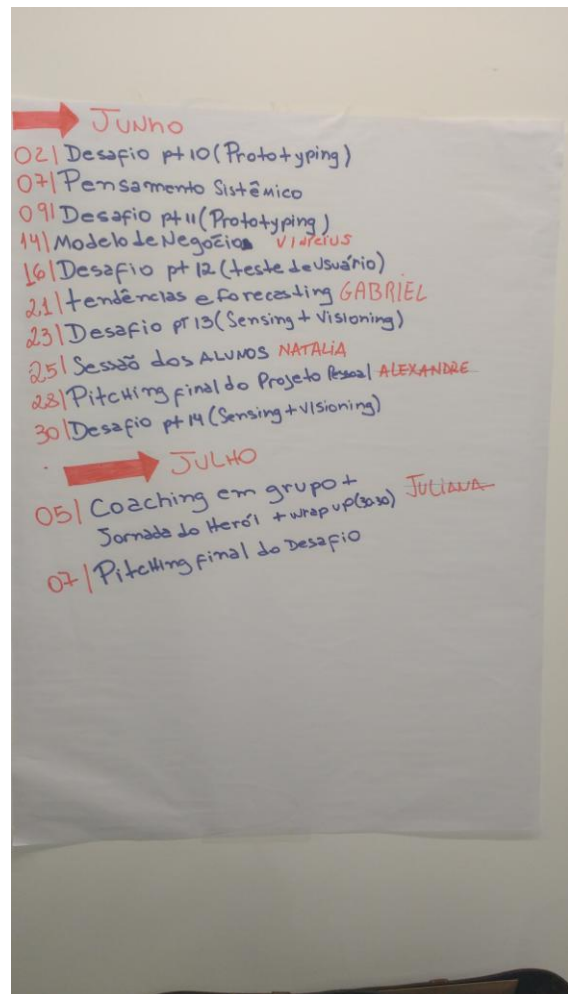 JUNHO
02| Desafio pt 10 (Prototyping)
07| Pensamento Sistêmico
09| Desafio pt 11 (Prototyping)
14| Modelo de Negócios Vinicius
16| Desafio pt 12 (teste de Usuário)
21| tendências e forecasting GABRIEL
23| Desafio pt 13 (Sensing + Visioning)
25| Sessão dos ALUNOS NATALIA
28| Pitching final do Projeto Pessoal ALEXANDRE
30| Desafio pt 14 (Sensing + Visioning)
JULHO
05| Coaching em grupo + JULIANA
Jornada do Herói + wrap up (30.30)
07| Pitching final do Desafio